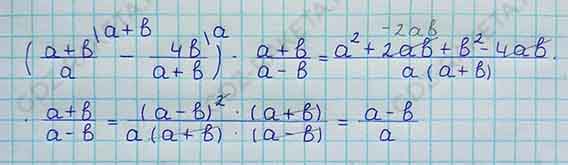 ((a+b)/a \a+b − 4b/(a+b) \a) · (a+b)/(a−b) = (a² + 2ab + b² − 4ab)/(a(a+b)) ·
−2ab
· (a+b)/(a−b) = ((a−b)² · (a+b))/(a(a+b) · (a−b)) = (a−b)/a